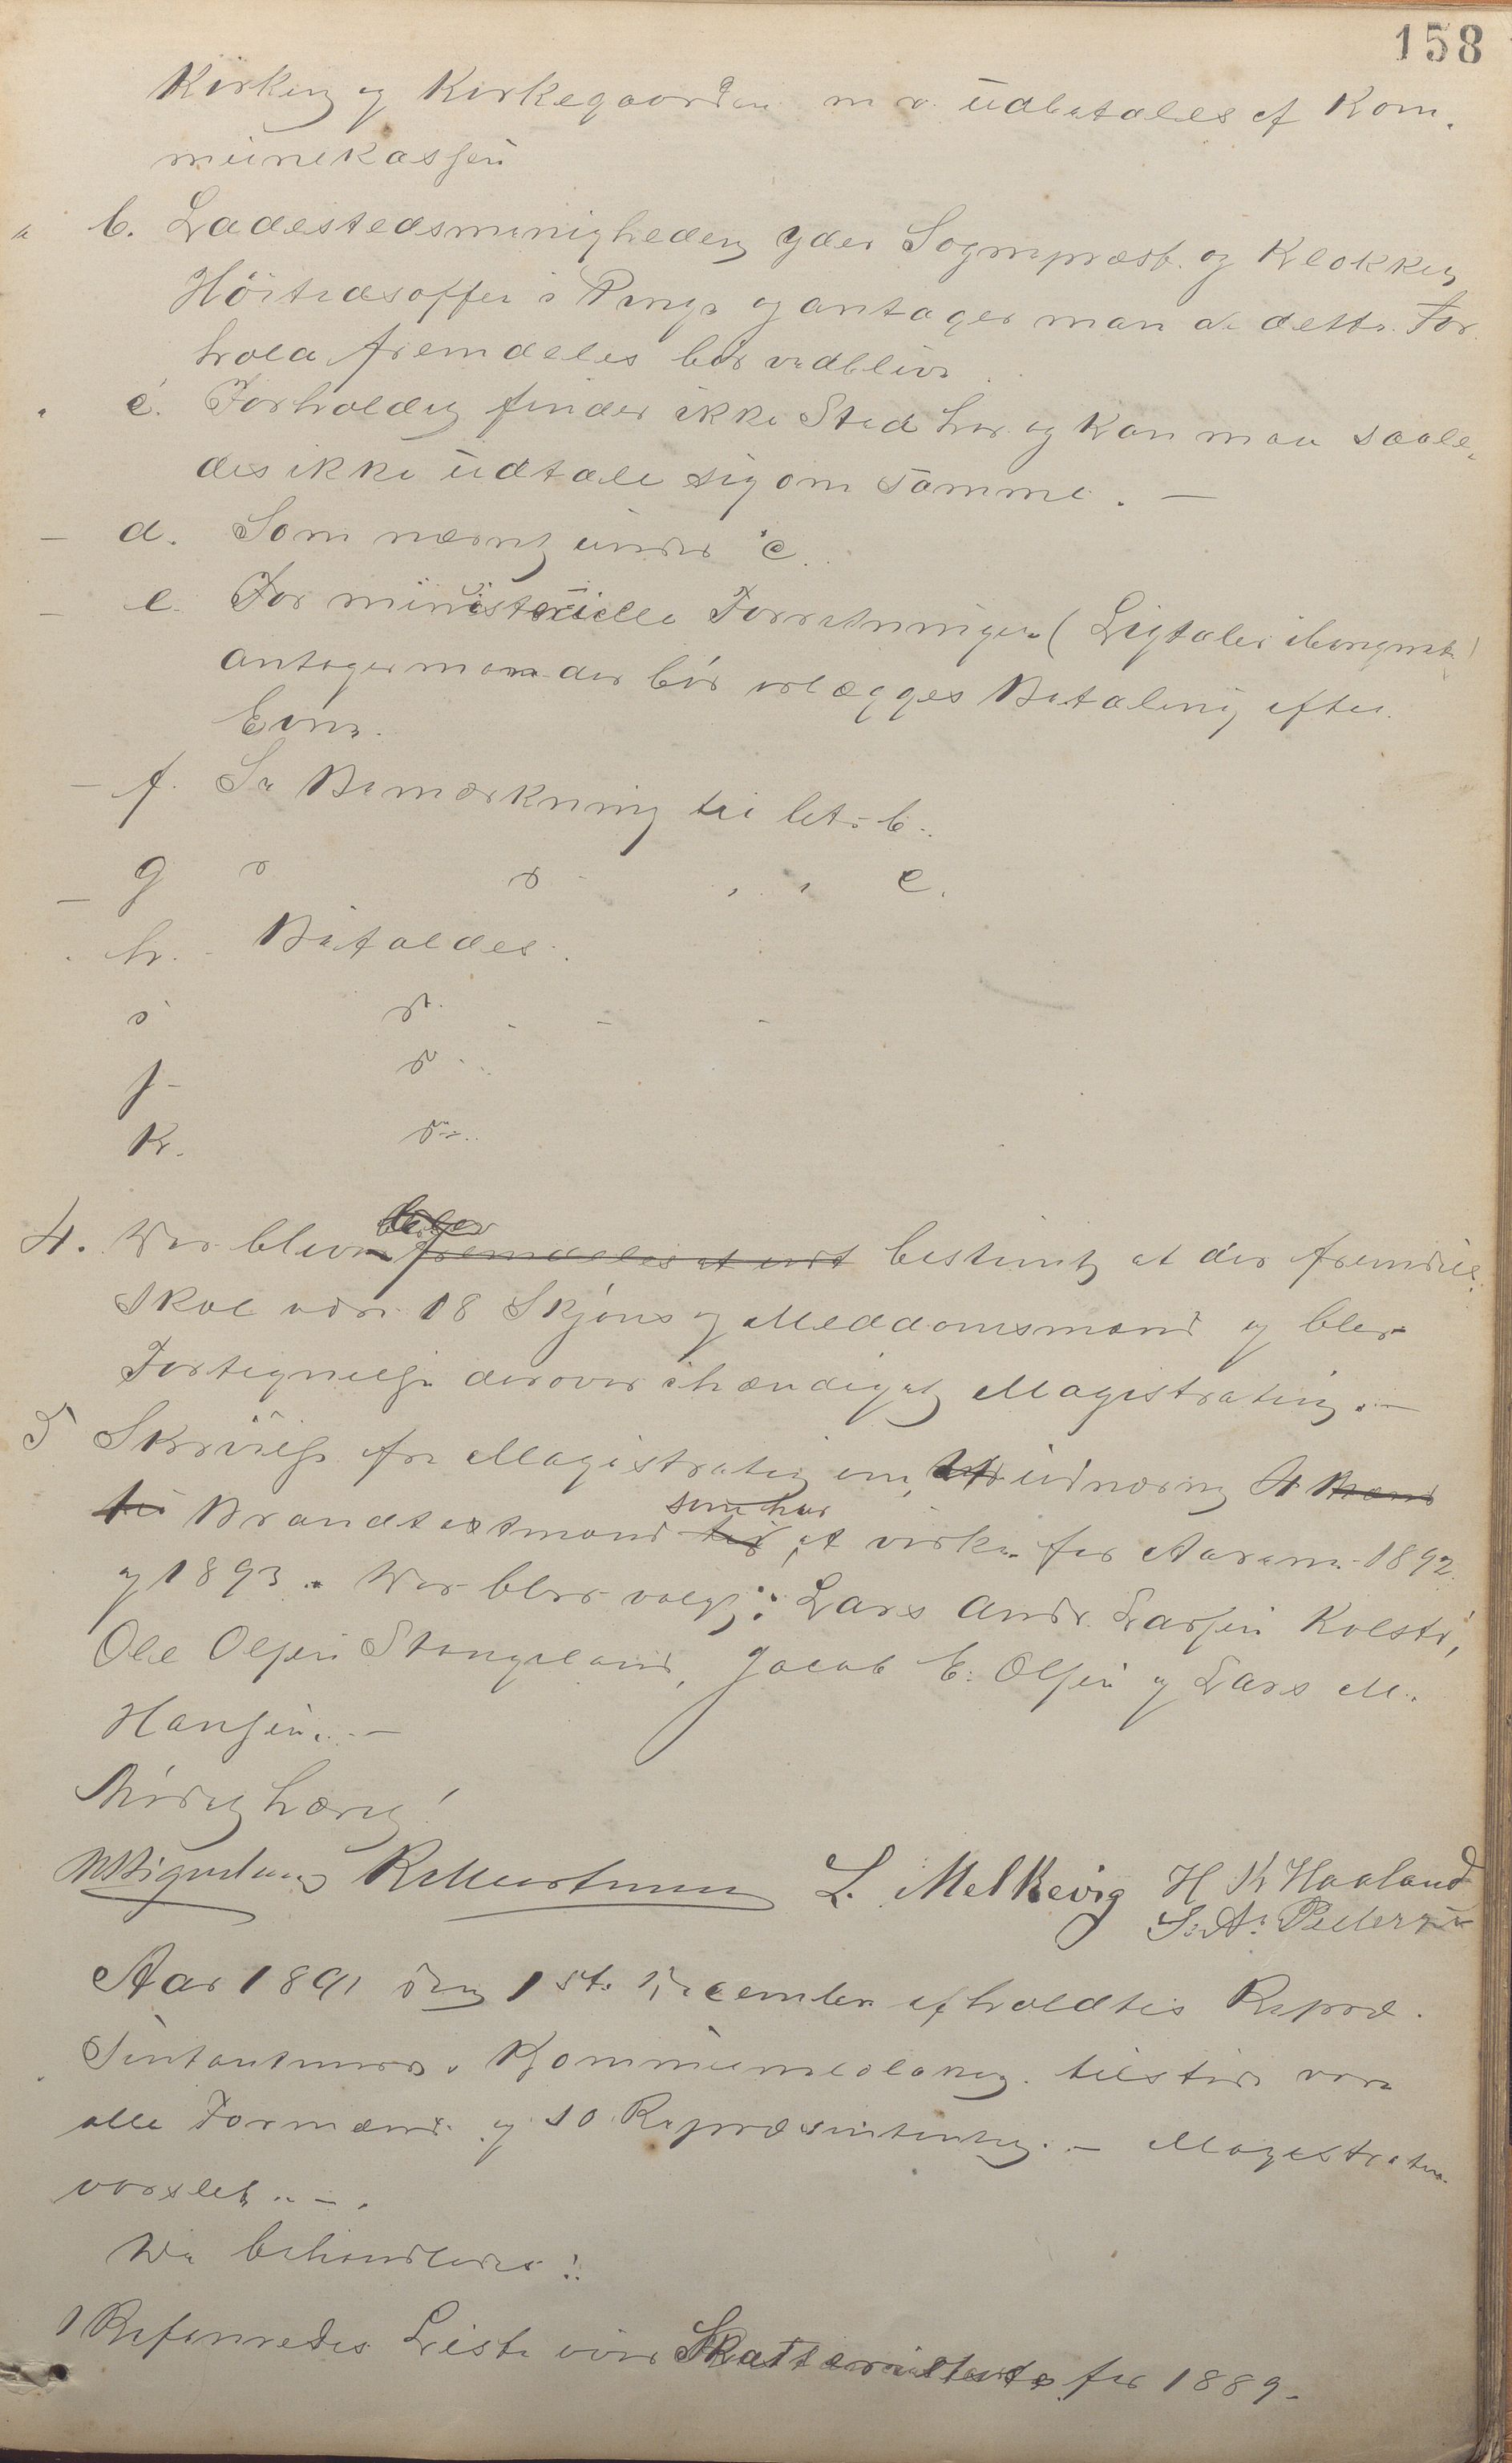 158
Kirken og Kirkegaarden m v. udbetales af Kom-
munekassen
" b. Ladestedsmenigheden yder Sognepræst og Klokker
Höitidsoffer i Penge og antager man at dette For
hold fremdeles bör vedblive.
" c. Forholdet finder ikke Sted her og kan man saale-
des ikke udtale sig om samme. —
— d. Som nævnt under c.
— e. For ministerielle Forretninger (Ligtaler iberegnet)
antager man der bör erlægges Betaling efter
Evne.
— f. Se Bemærkning til let. b.
— g " " " " e.
" h. Bifaldes.
i do
j do
k. do
4. Der blev fremdeles bestemt at der fremdeles
skal være 18 Skjöns og Meddomsmænd og blev
Fortegnelse derover ihændiget Magistraten. —
5 Skrivelse fra Magistraten om Udnævn 4
Brandtaxtmænd som har at virke for Aarene 1892
og 1893. Der blev valgt: Lars Andr. Larsen Kolstö,
Ole Olsen Stangeland, Jacob E. Olsen og Lars M.
Hansen. —
Mödet hævet!
L. Melkevig H K Haaland
S. A. Pedersen
Aar 1891 den 1ste December afholdtes Repræ-
sentantmöde i Kommunelokalet. tilstede vare
alle Formænd og 10 Repræsentanter. — Magistraten
varslet. —
Der behandledes:
1 Refereredes Liste over Skatterestante for 1889.